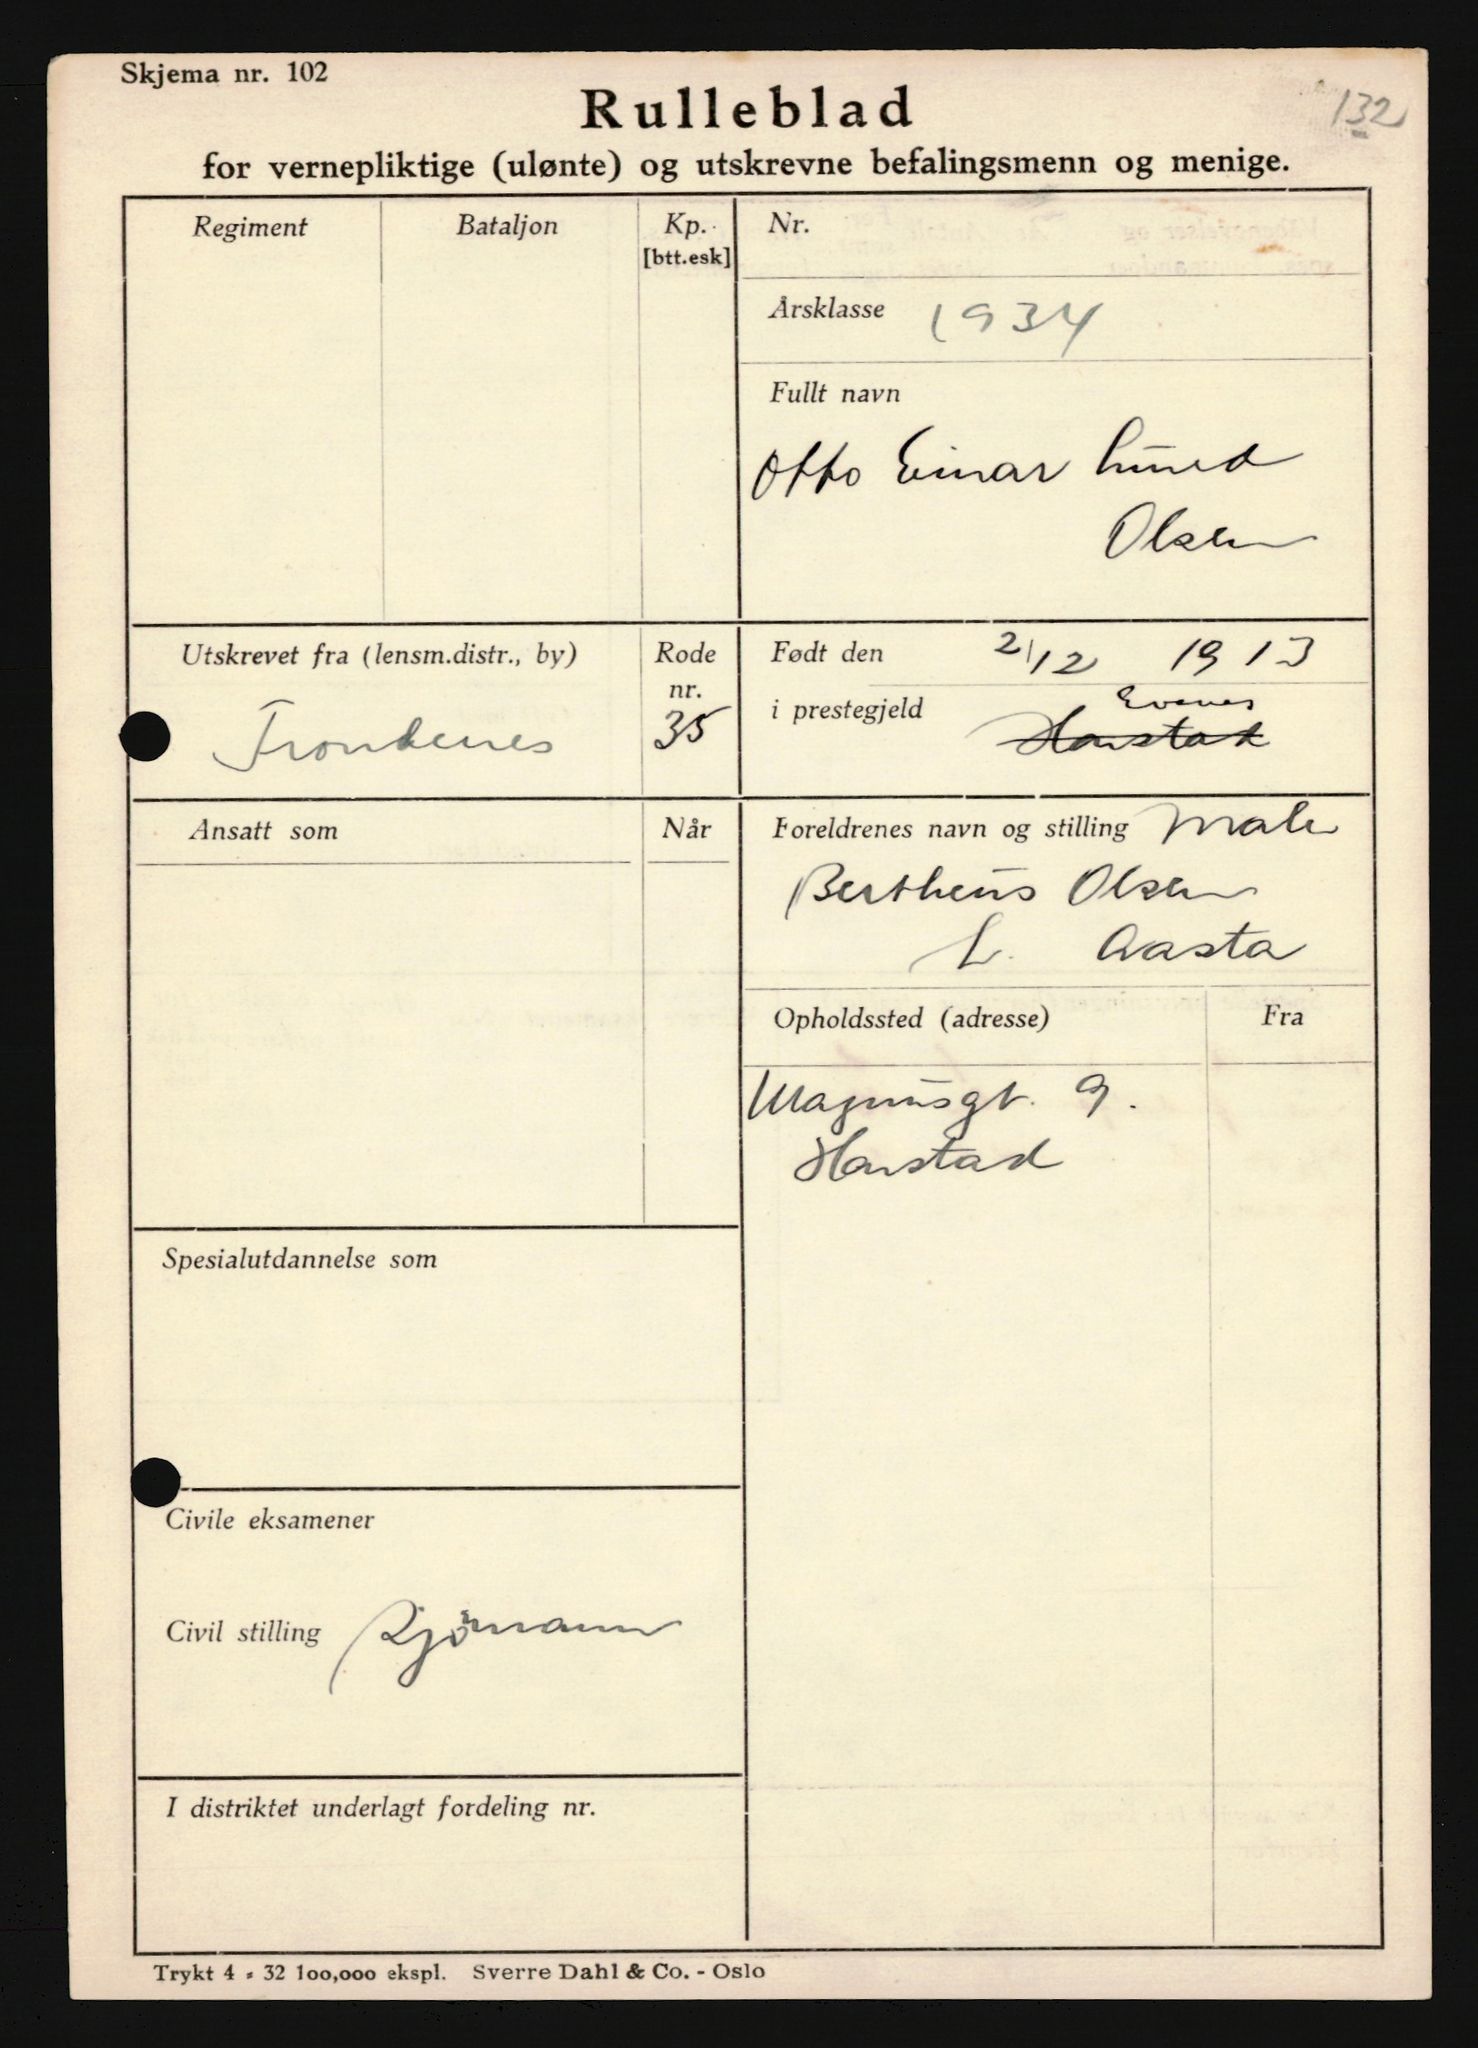 Skjema nr. 102
132
Rulleblad
for vernepliktige (ulønte) og utskrevne befalingsmenn og menige.
Regiment
Bataljon
Kp.
[btt.esk]
Nr.
Årsklasse 1934
Fullt navn
Otto Einar Lund
Olsen
Utskrevet fra (lensm.distr., by)
Trondenes
Rode
nr.
35
Født den 2/12 1913
Evenes
i prestegjeld Harstad
Ansatt som
Når
Foreldrenes navn og stilling Maler
Bertheus Olsen
Aasta
Opholdssted (adresse)
Fra
Magnusgt. 9.
Harstad
Spesialutdannelse som
Civile eksamener
Civil stilling Sjømann
I distriktet underlagt fordeling nr.
Trykt 4 - 32 100,000 ekspl. Sverre Dahl & Co. - Oslo